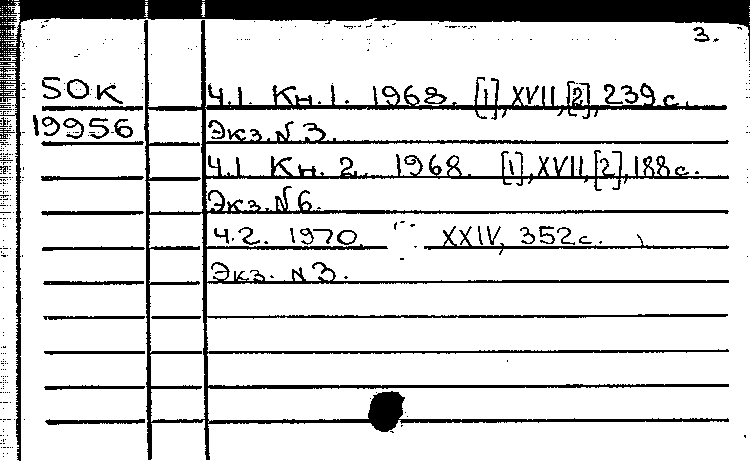 3.
SOK Ч.1. Кн.1. 1968. [1], XVII, [2], 239с.
19956 Экз. N 3.
Ч.1 Кн. 2. 1968. [1], XVII, [2], 188с.
Экз. N 6.
Ч.2. 1970. XXIV, 352с.
Экз. N 3.